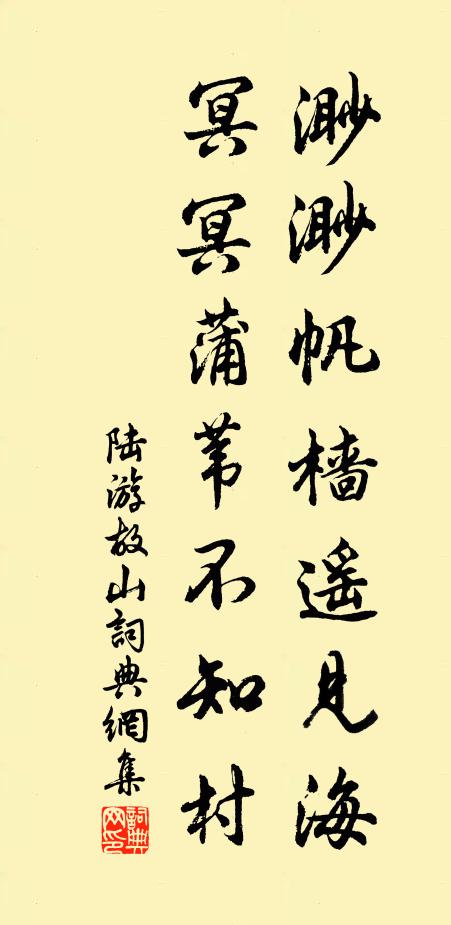 渺渺帆檣遥見海
冥冥蒲苇不知村
陆游故山詞典網集
詞典網印